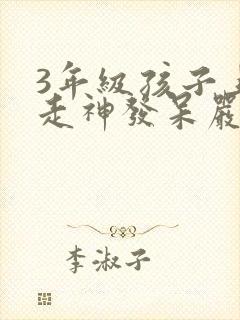 3年級孩子
走神發呆嚴
李淑子